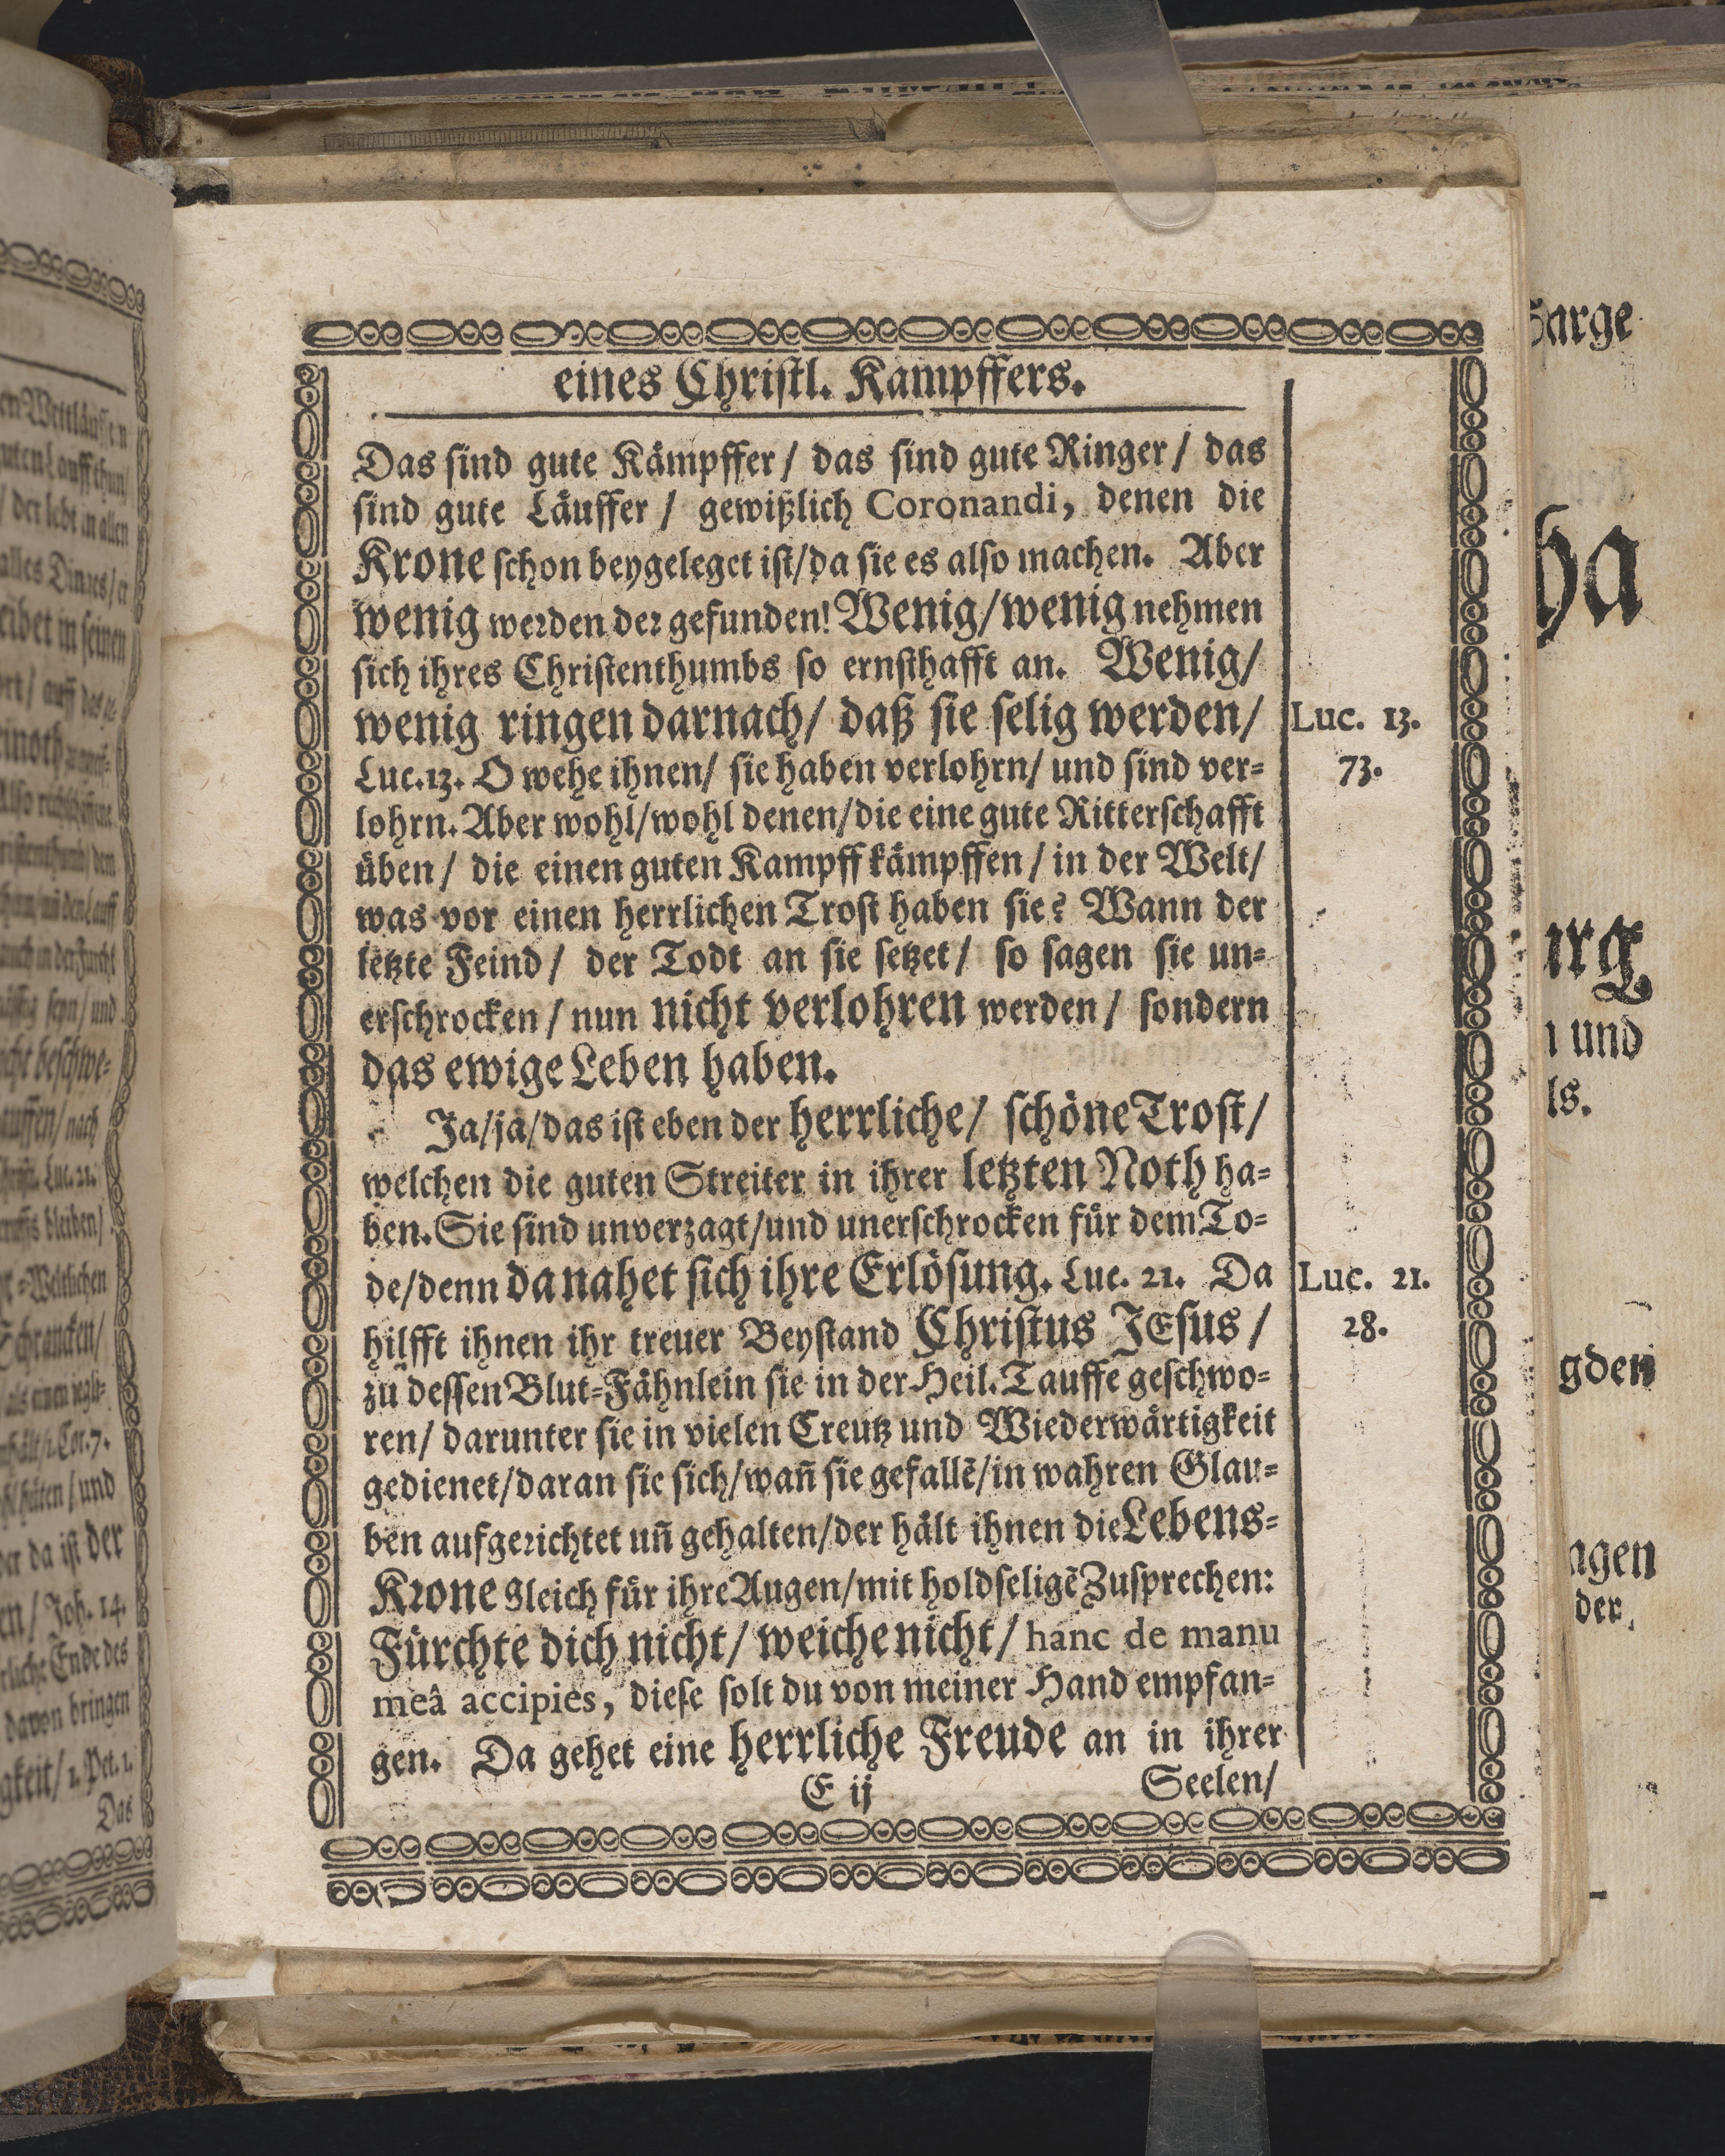 eines Christl. Kampffers.
Das sind gute Kämpffer/ das sind gute Ringer/ das
sind gute Läuffer/ gewißlich Coronandi, denen die
Krone schon beygeleget ist/da sie es also machen. Aber
wenig werden der gefunden! Wenig/wenig nehmen
sich ihres Christenthumbs so ernsthafft an. Wenig/
wenig ringen darnach/ daß sie selig werden/
Luc. 13.
Luc.13. O wehe ihnen/ sie haben verlohrn/ und sind ver-
73.
lohrn. Aber wohl/wohl denen/die eine gute Ritterschafft
üben/ die einen guten Kampff kämpffen/ in der Welt/
was vor einen herrlichen Trost haben sie? Wann der
letzte Feind/ der Todt an sie setzet/ so sagen sie un-
erschrocken/ nun nicht verlohren werden/ sondern
das ewige Leben haben.
Ja/ja/das ist eben der herrliche/ schöne Trost/
welchen die guten Streiter in ihrer letzten Noth ha-
ben. Sie sind unverzagt/und unerschrocken für dem To-
de/denn da nahet sich ihre Erlösung. Luc. 21. Da
Luc. 21.
hilfft ihnen ihr treuer Beystand Christus JEsus/
28.
zu dessen Blut-Fähnlein sie in der Heil. Tauffe geschwo-
ren/ darunter sie in vielen Creutz und Wiederwärtigkeit
gedienet/daran sie sich/wañ sie gefallẽ/in wahren Glau-
ben aufgerichtet uñ gehalten/der hält ihnen die Lebens-
Krone gleich für ihre Augen/mit holdseligẽ Zusprechen:
Fürchte dich nicht/ weiche nicht/ hanc de manu
meâ accipies, diese solt du von meiner Hand empfan-
gen. Da gehet eine herrliche Freude an in ihrer
E ij
Seelen/